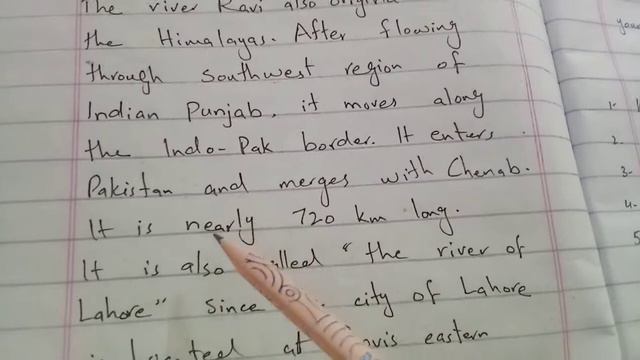 The river Ravi also
the Himalayas. After flowing
through southwest region of
Indian Punjab, it moves along
the Indo-Pak border. It enters
Pakistan and merges with Chenab.
It is nearly 720 km long.
It is also "the river of
Lahore" since city of Lahore
at eastern
1.
2.
3.
4.
5